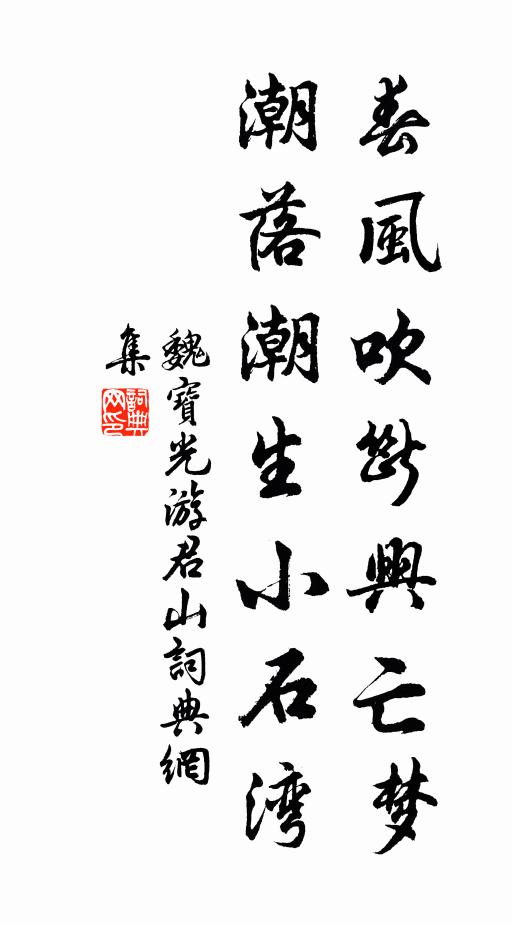 春風吹断興亡梦
潮落潮生小石湾
魏寶光游君山詞典網
集
詞典网印